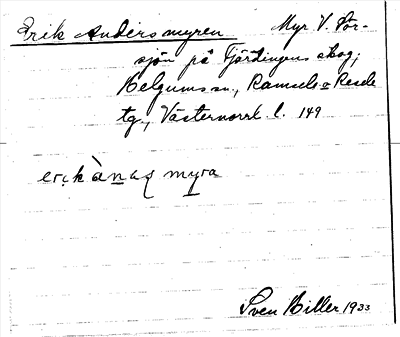 Erik Andersmyren Myr V. Stor-
sjön på Fjärdingens skog,
Helgums sn., Ramsele o Resele
tg., Västernorrl. l. 149
erik ànas myra
Sven Biller 1933